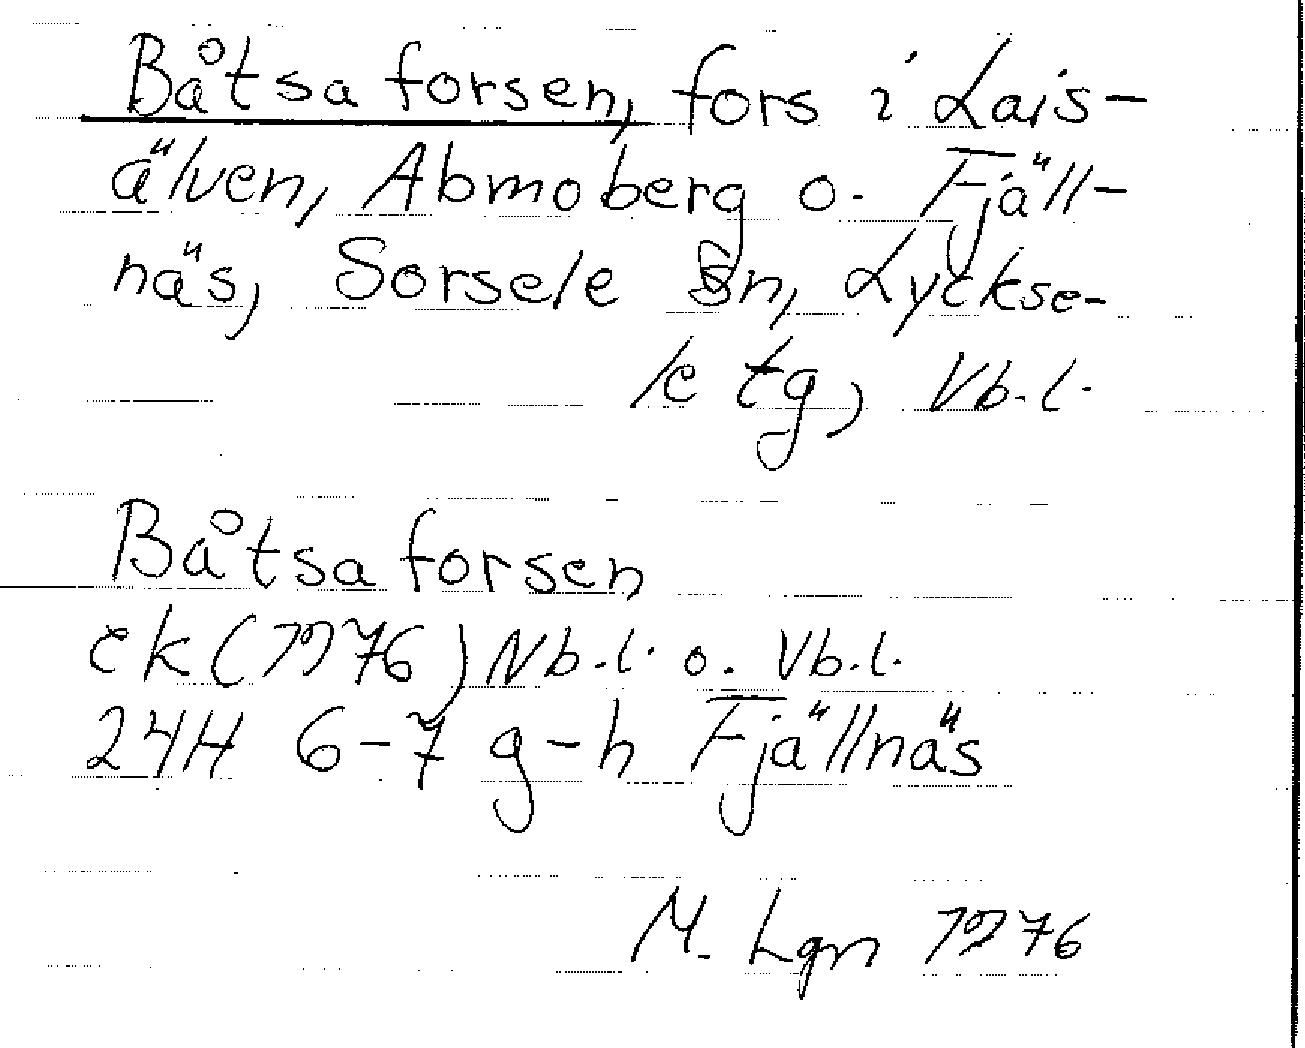 Båtsaforsen, fors i Lais-
älven, Abmoberg o. Fjäll-
näs, Sorsele sn, Lyckse-
le tg, Vb.l.
Båtsaforsen
ek (1976) Nb.l. o. Vb.l.
24H 6-7 g-h Fjällnäs
M. Lgn 1976